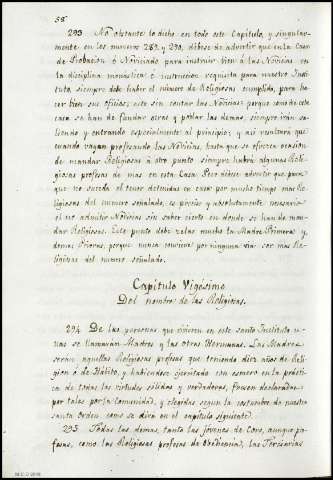 58
293 No obstante lo dicho en todo este Capítulo, y singular-
mente en los numeros 289 y 290, débese de advertir que en la Casa
de Probacion ó Noviciado para instruir bien a las Novicias en
la disciplina monastica é instruccion requisita para nuestro Insti-
tuto, siempre debe haber el número de Religiosas cumplido, para ha-
cer bien sus oficios; esto sin contar las Novicias; porque como de esta
casa se han de fundar otras y poblar las demas, siempre irán sa-
liendo y entrando especialmente al principio; y asi resultará que
cuando vayan profesando las Novicias, hasta que se ofrezca ocasion
de mandar Religiosas á otro punto siempre habrá algunas Reli-
giosas profesas de mas en esta Casa. Pero débese advertir que para
que no suceda el tener detenidas en casa por mucho tiempo mas Re-
ligiosas del número señalado, es preciso y absolutamente necesario
el no admitir Novicias sin saber cierto en donde se han de man-
dar Religiosas. Este punto debe zelar mucho la Madre Primera y
demas Prioras, porque nunca conviene por ninguna via ser mas Re-
ligiosas del número señalado.
Capítulo Vigésimo
Del nombre de las Religiosas.
294 De las personas que vivieren en este santo Instituto u-
nas se llamarán Madres y las otras Hermanas. Las Madres
serán aquellas Religiosas profesas que teniendo diez años de Reli-
gion ó de Hábito, y habiéndose ejercitado con esmero en la prácti-
ca de todas las virtudes sólidas y verdaderas, fuesen declaradas
por tales por la Comunidad, y elegidas segun la costumbre de nuestra
santa Orden como se dirá en el capítulo siguiente.
295 Todas las demas, tanto las jóvenes de Coro, aunque pro-
fesas, como las Religiosas profesas de obediencia, las Terciarias